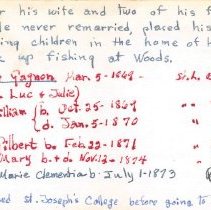 r his wife and two of his f
le never remarried, placed his
ing children in the home of h
k up fishing at Woods.
Gagnon Mar. 5-1868 - St. L
Luc & Julie)
illiam {b. Oct 25-1869
{d. Jan. 5-1870
ilbert b. Feb 22-1871
Mary b. & d. Nov. 12-1874
Marie Clementia b. July 1-1873
ed St. Joseph's College before going to